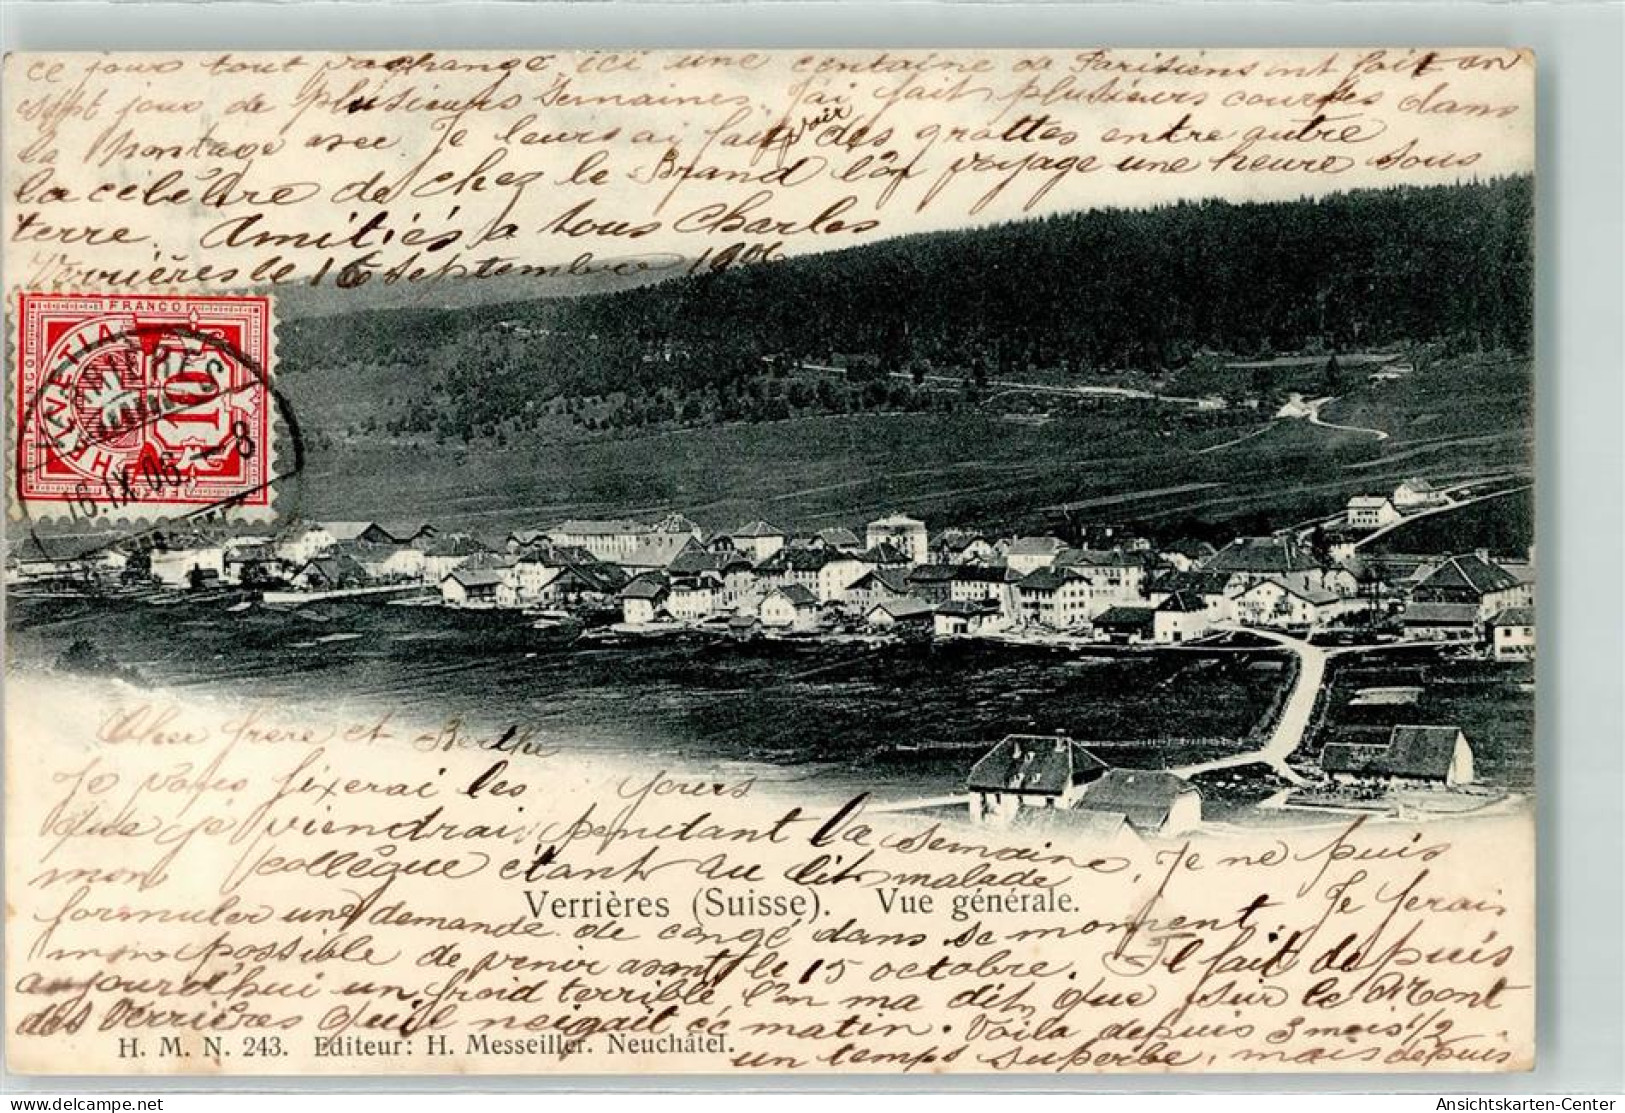 ce jours tout change ici une centaine de Parisiens ont fait un
sept jours de plusieurs semaines. J'ai fait plusieurs courses dans
la Montage avec Je leurs ai fait voir des grottes entre autre
la célébre de chez le Brand l'on voyage une heure sous
terre. Amitiés a tous Charles
Verrières le 16 septembre 1906
FRANCO
HELVETIA
10
VERRIERES
16.IX.06.-8
Cher frere et Berthe
Je vous fixerai les jours
que je viendrai pendant la semaine, Je ne puis
mon collègue étant au lit malade
Verrières (Suisse). Vue générale.
formuler une demande de congé dans se moment. Je ferais
mon possible de venir avant le 15 octobre. Il fait depuis
aujourd'hui un froid terrible, l'on ma dit que sur le Mont
des Verrières qu'il neigait ce matin. Voila depuis 3 mois 1/2
H. M. N. 243. Editeur: H. Messeiller. Neuchâtel.
un temps superbe, mais depuis
Ansichtskarten-Center
delcampe.net